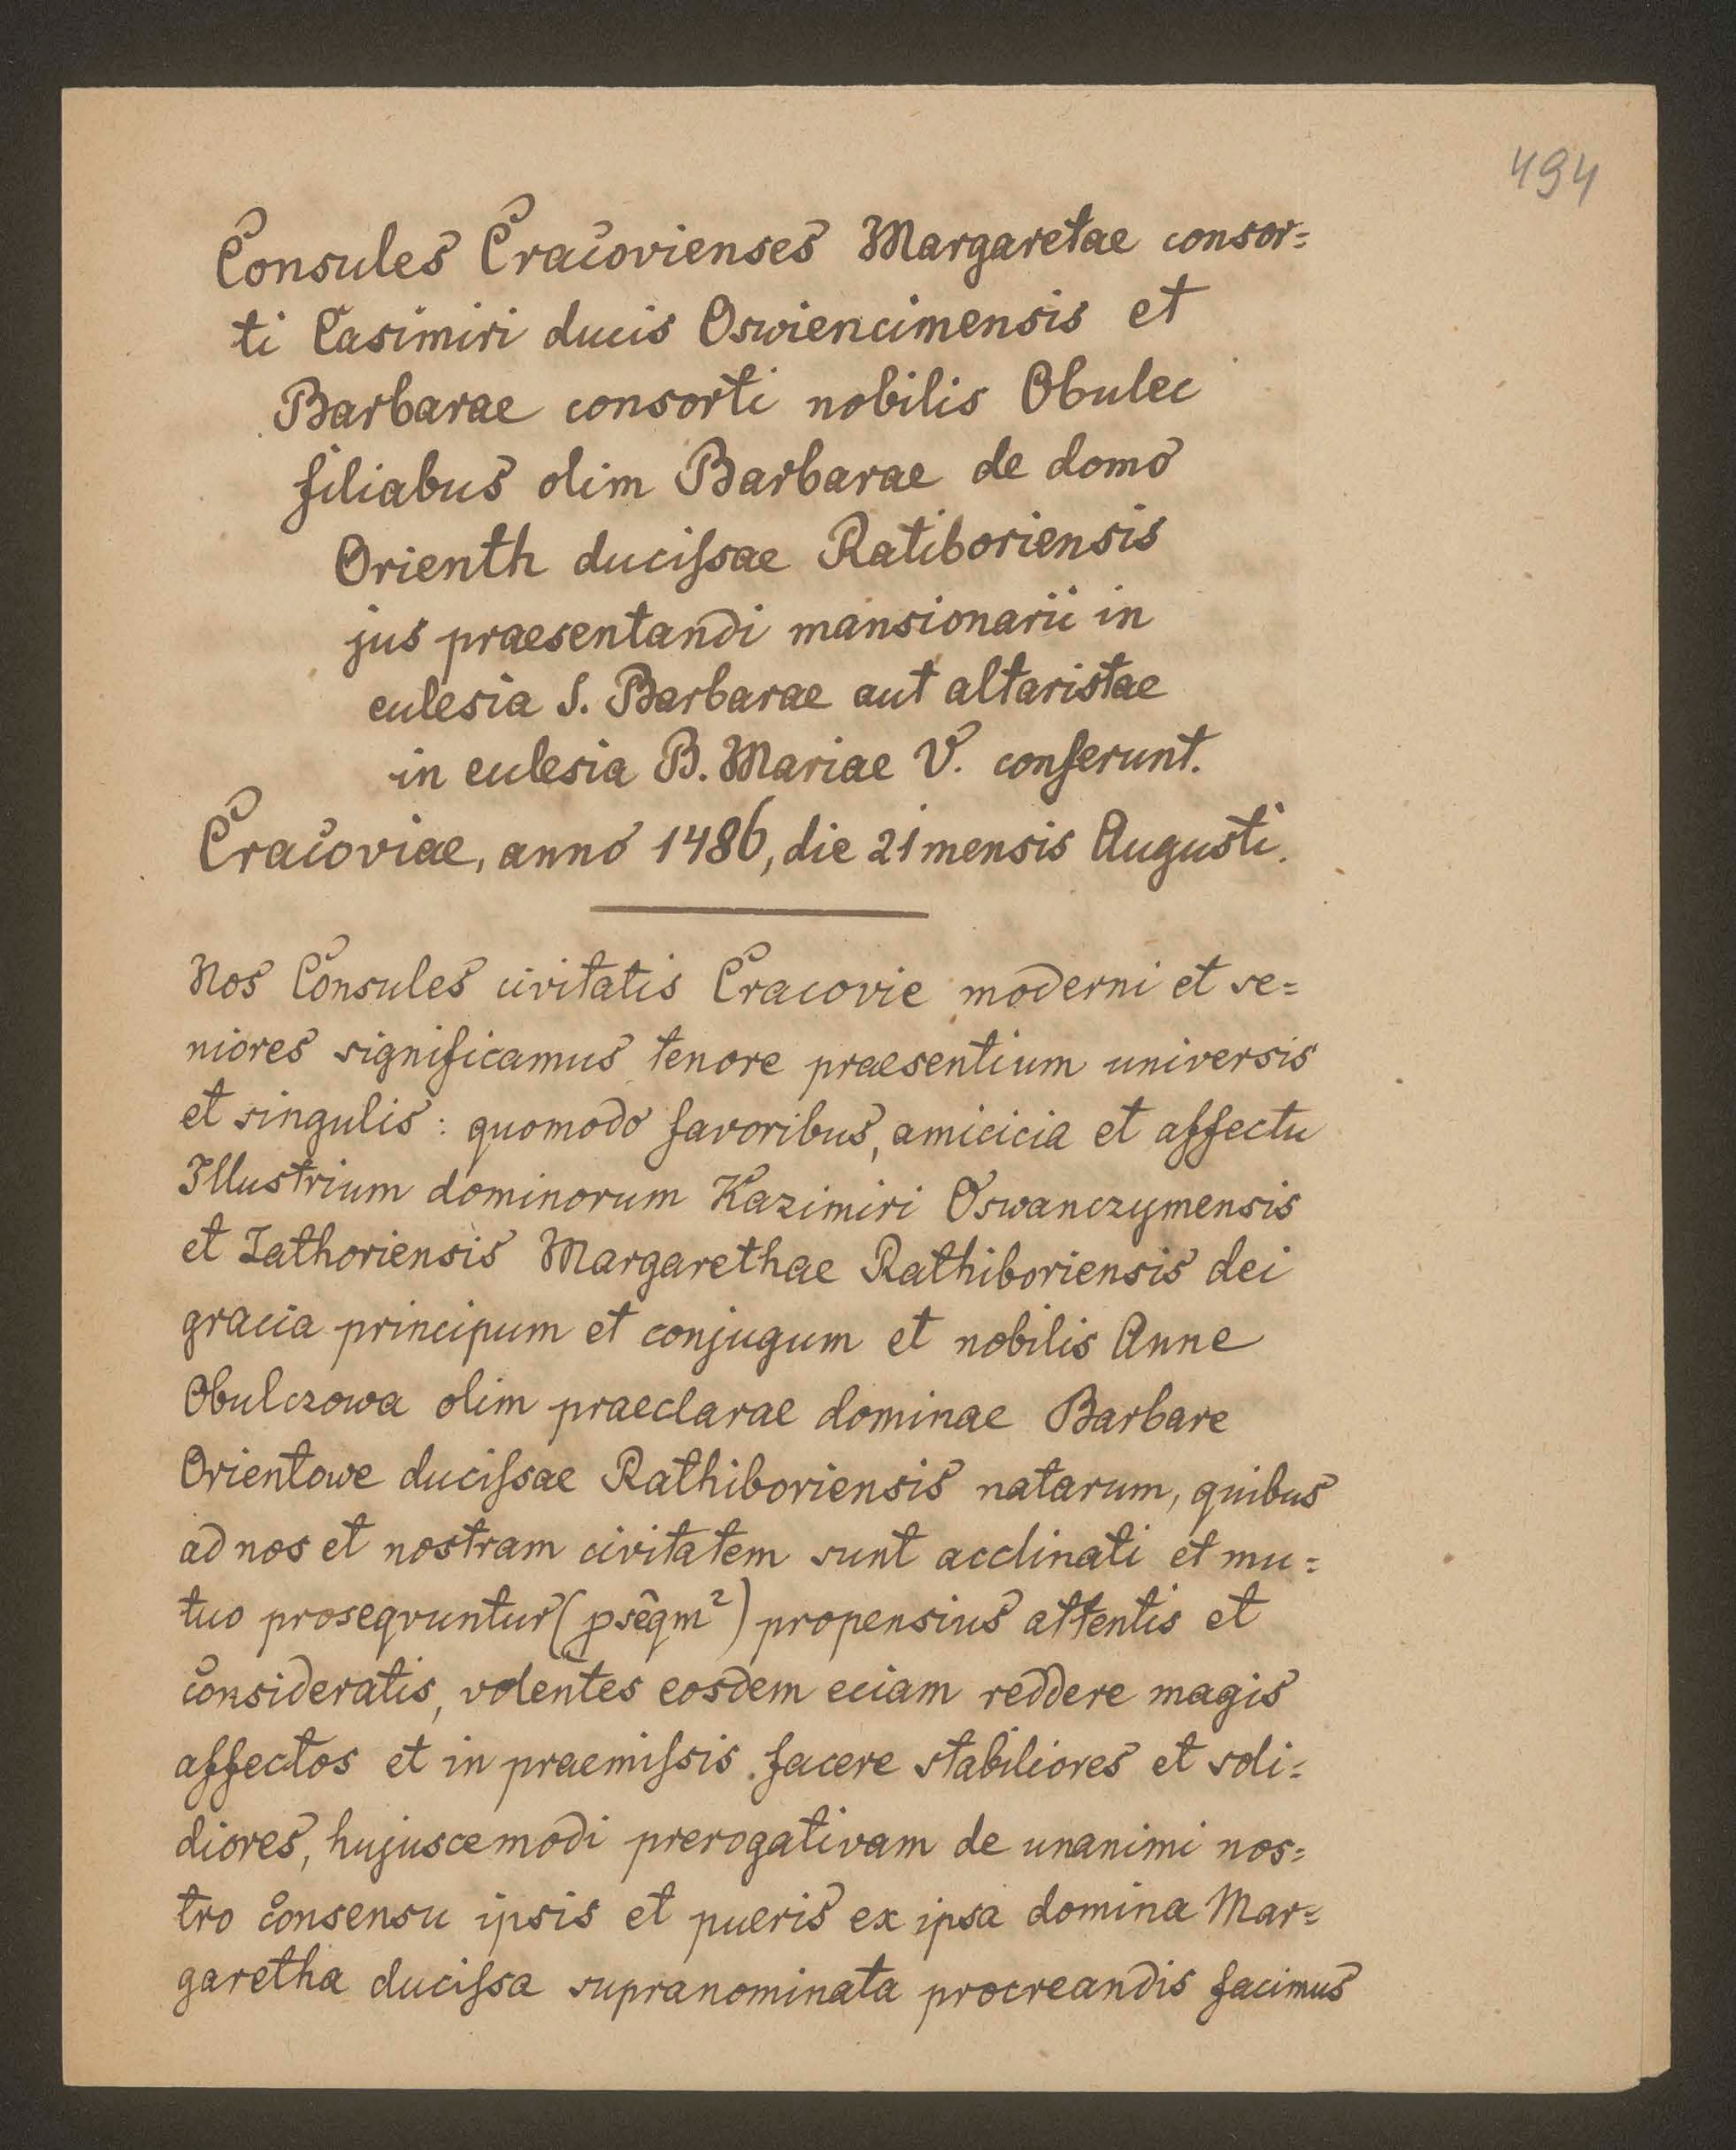 494
Consules Cracovienses Margaretae consor=
ti Casimiri ducis Oswiencimensis et
Barbarae consorti nobilis Obulec
filiabus olim Barbarae de domo
Orienth ducissae Ratiboriensis
jus praesentandi mansionarii in
ecclesia S. Barbarae aut altaristae
in ecclesia B. Mariae V. conferunt.
Cracoviae, anno 1486, die 21 mensis Augusti.
Nos Consules civitatis Cracovie moderni et se=
niores significamus tenore praesentium universis
et singulis: quomodo favoribus, amicicia et affectu
Illustrium dominorum Kazimiri Oswanczymensis
et Zathoriensis Margarethae Rathiboriensis dei
gracia principum et conjugum et nobilis Anne
Obulczowa olim praeclarae dominae Barbare
Orientowe ducissae Rathiboriensis natarum, quibus
ad nos et nostram civitatem sunt acclinati et mu=
tuo proseqvuntur (pseqm²) propensius attentis et
consideratis, volentes eosdem eciam reddere magis
affectos et in praemissis facere stabiliores et soli=
diores, hujuscemodi prerogativam de unanimi nos=
tro consensu ipsis et pueris ex ipsa domina Mar=
garetha ducissa supranominata procreandis facimus